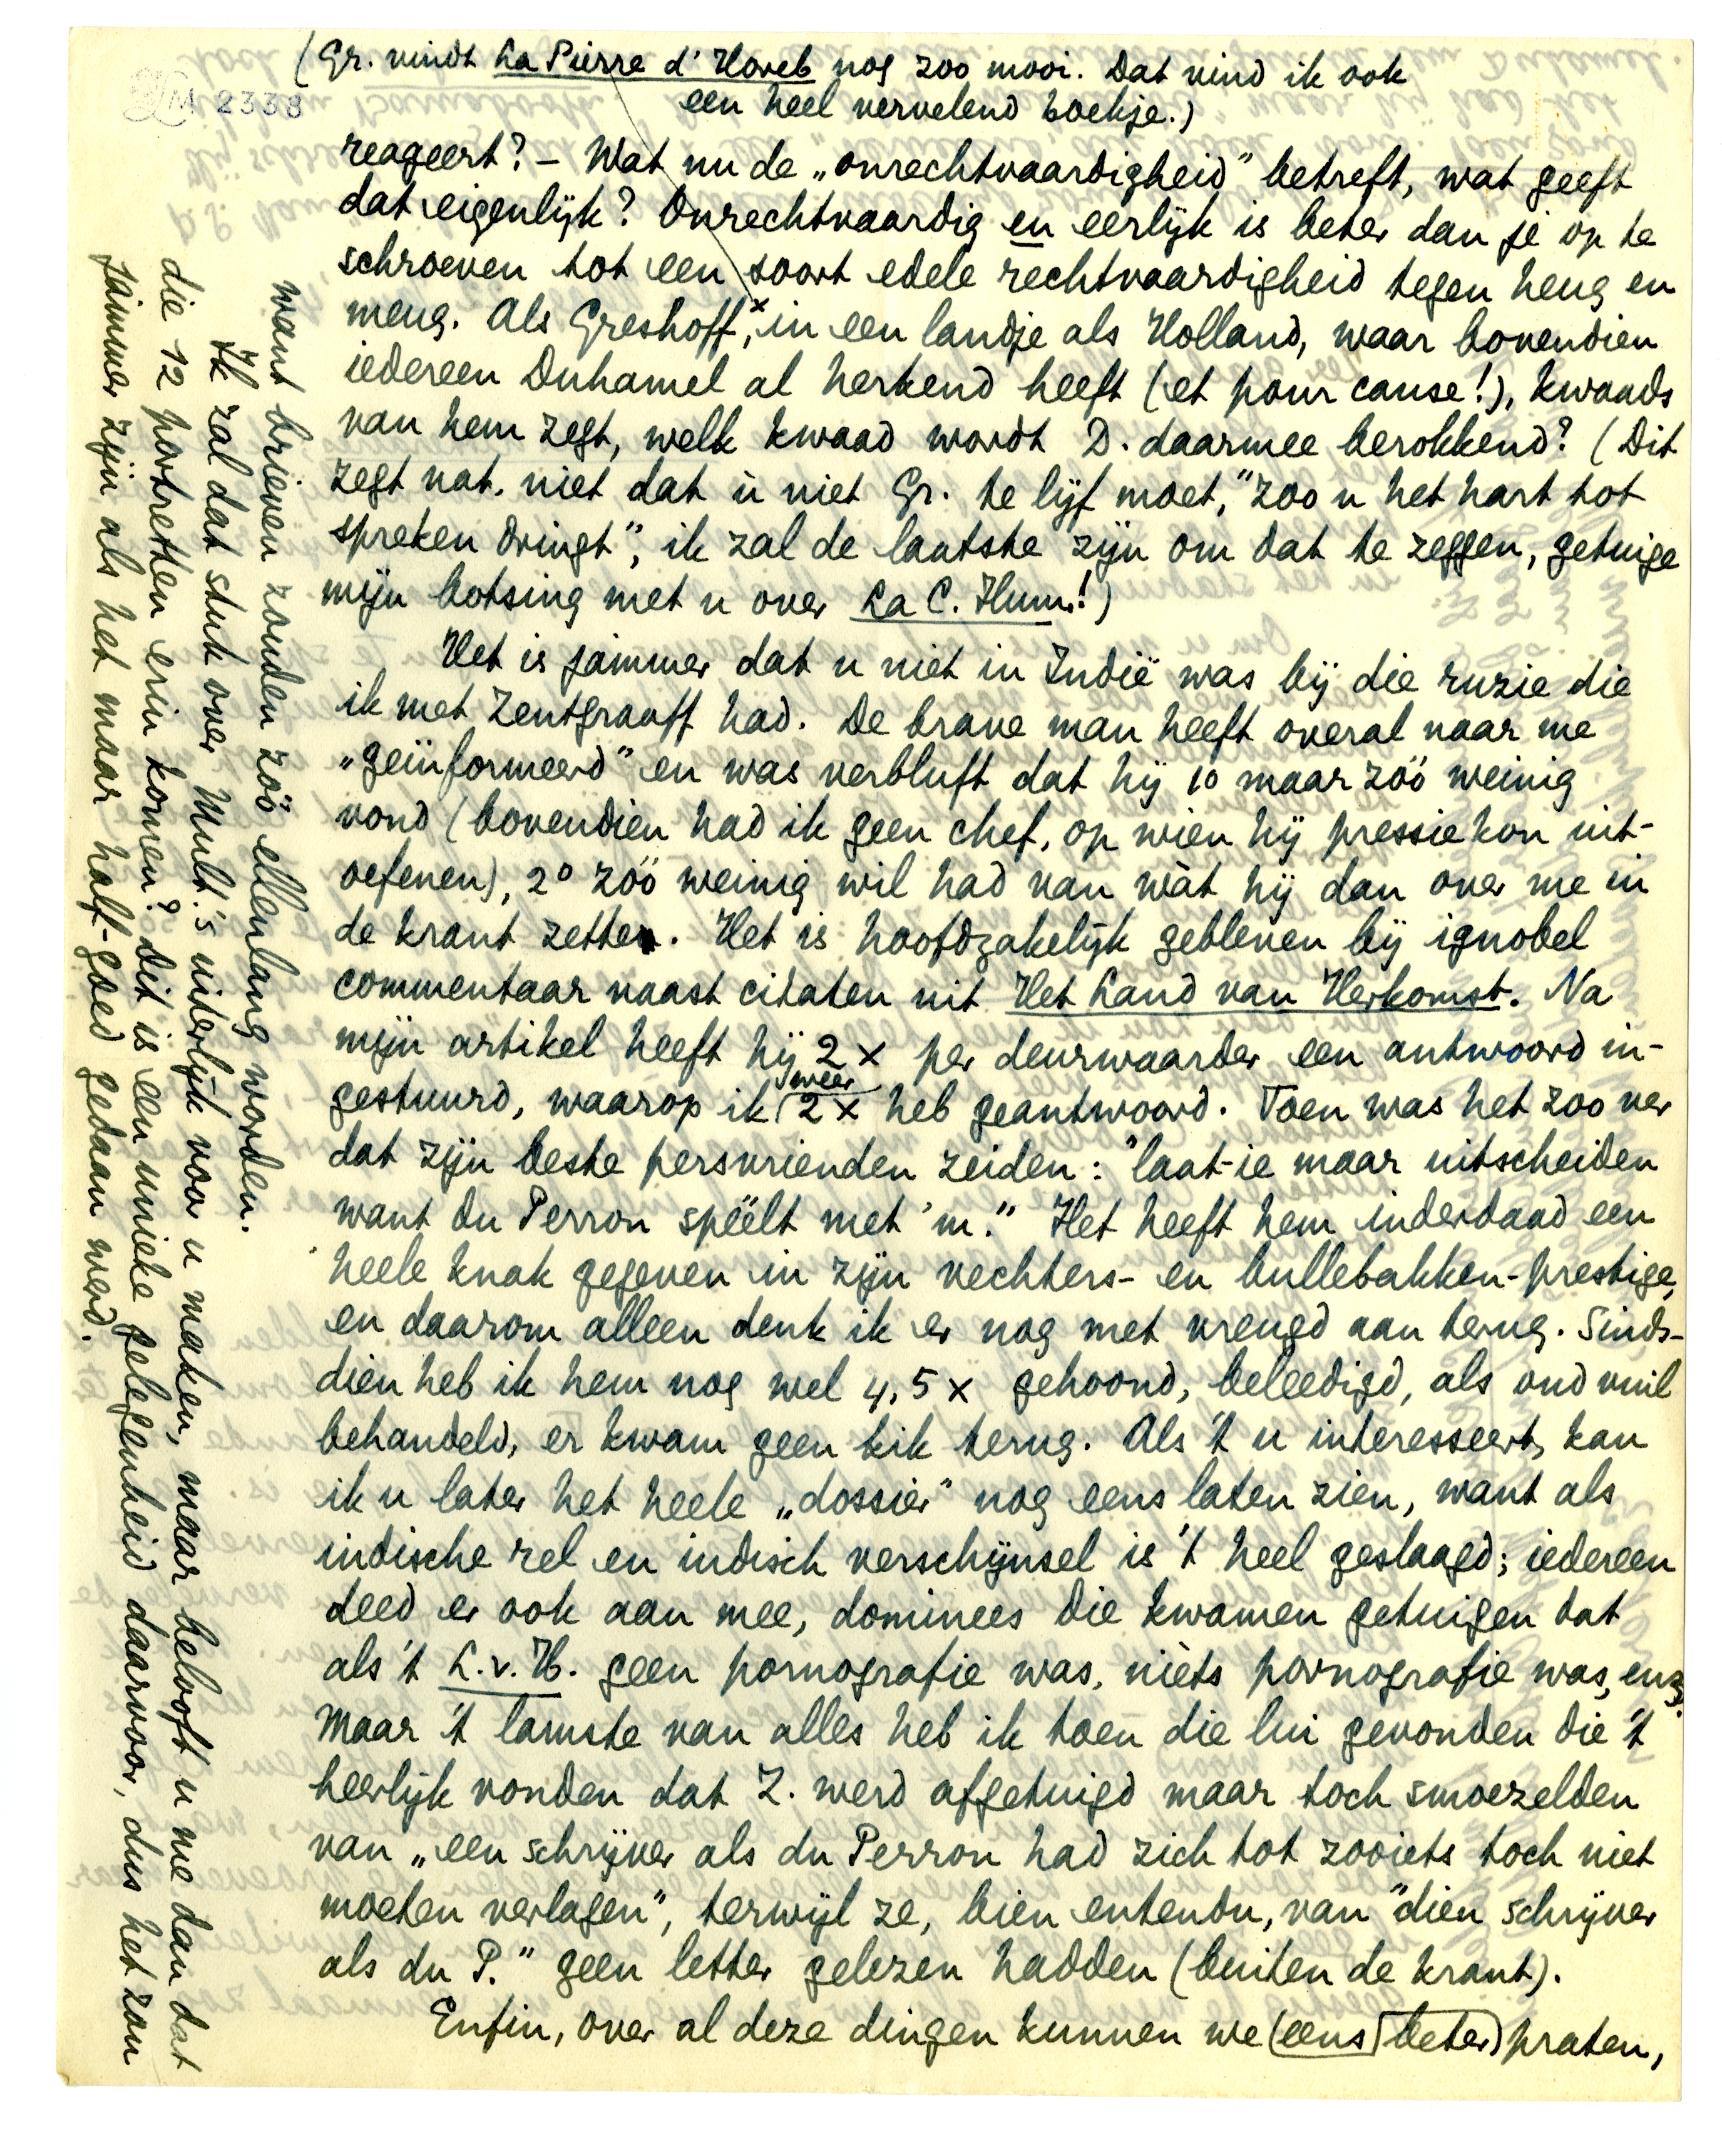 (Gr. vindt La Pierre d'Horeb nog zoo mooi. Dat vind ik ook
een heel vervelend boekje.)
LM 2338
reageert? – Wat nu de „onrechtvaardigheid" betreft, wat geeft
dat eigenlijk? Onrechtvaardig en eerlijk is beter dan je op te
schroeven tot een soort edele rechtvaardigheid tegen heug en
meug. Als Greshoff,x in een landje als Holland, waar bovendien
iedereen Duhamel al herkend heeft (et pour cause!), kwaads
van hem zegt, welk kwaad wordt D. daarmee berokkend? (Dit
zegt nat. niet dat ù niet Gr. te lijf moet, "zoo u het hart tot
spreken dringt", ik zal de laatste zijn om dat te zeggen, getuige
mijn botsing met u over La C. Hum.!)
Het is jammer dat u niet in Indië was bij die ruzie die
ik met Zentgraaff had. De brave man heeft overal naar me
„geïnformeerd" en was verbluft dat hij 1o maar zóó weinig
vond (bovendien had ik geen chef, op wien hij pressie kon uit-
oefenen), 2o zóó weinig wil had van wàt hij dan over me in
de krant zette. Het is hoofdzakelijk gebleven bij ignobel
commentaar naast citaten uit Het Land van Herkomst. Na
mijn artikel heeft hij 2 x per deurwaarder een antwoord in-
gestuurd, waarop ik weer 2 x heb geantwoord. Toen was het zoo ver
dat zijn beste persvrienden zeiden: "laat-ie maar uitscheiden
want du Perron spéélt met 'm." Het heeft hem inderdaad een
heele knak gegeven in zijn vechters- en bullebakken-prestige,
en daarom alleen denk ik er nog met vreugd aan terug. Sinds-
dien heb ik hem nog wel 4, 5 x gehoond, beleedigd, als oud vuil
behandeld, er kwam geen kik terug. Als 't u interesseert, kan
ik u later het heele „dossier" nog eens laten zien, want als
indische rel en indisch verschijnsel is 't heel geslaagd; iedereen
deed er ook aan mee, dominees die kwamen getuigen dat
als 't L.v.H. geen pornografie was, niets pornografie was, enz.
Maar 't lamste van alles heb ik toen die lui gevonden die 't
heerlijk vonden dat Z. werd afgetuigd maar toch smoezelden
van „een schrijver als du Perron had zich tot zooiets toch niet
moeten verlagen", terwijl ze, bien entendu, van "dien schrijver
als du P." geen letter gelezen hadden (buiten de krant).
Enfin, over al deze dingen kunnen we eens beter praten,
want brieven zouden zóó ellenlang worden.
Ik zal dat stuk over Mult.'s uiterlijk voor u maken, maar belooft u me dan dat
die 12 portretten erin komen? Dit is een unieke gelegenheid daarvoor, dus het zou
jammer zijn als het maar half-goed gedaan werd.